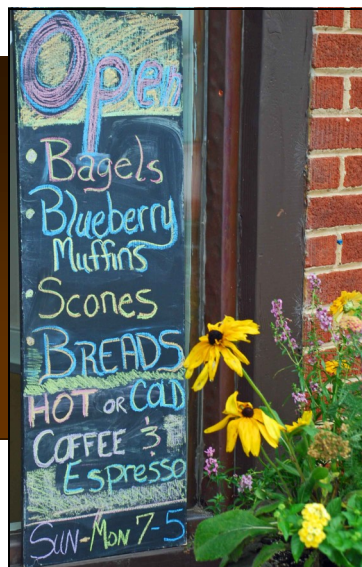 Open
• Bagels
• Blueberry
Muffins
• Scones
• BREADS
HOT OR COLD
COFFEE &
Espresso
SUN-MON 7-5